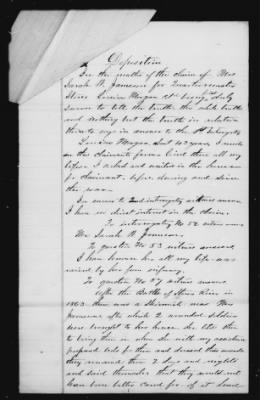 Deposition
In the matter of the claim of Mrs
Sarah W. Jameson for Quartermaster
Stores Lucinda Mayson Wit being duly
sworn to tell the truth the whole truth
and nothing but the truth in relation
thereto says in answer to the 1st Interrogty
Lucinda Mayson, but 42 years, I reside
on the claimants farm lived there all my
life. I acted and waited in the house
for claimant before, during and since
the war
In answer to 2nd interrogatory witness answers
I have no direct interest in the claim.
To interrogatory No 52 witness answers
Mrs Sarah W. Jameson.
To question No 53 witness answered
I have known her all my life was
raised by her from infancy.
To question No 57 witness answered
After the Battle of Stone River in
1863 there was a Skirmish near Mrs
Jameson after which 2 wounded soldiers
were brought to her house She told them
to bring them in when she with my assistance
prepared beds for them and dressed their wounds
they remained there 2 days and nights
and said themselves that they would not
have been better cared for if at home